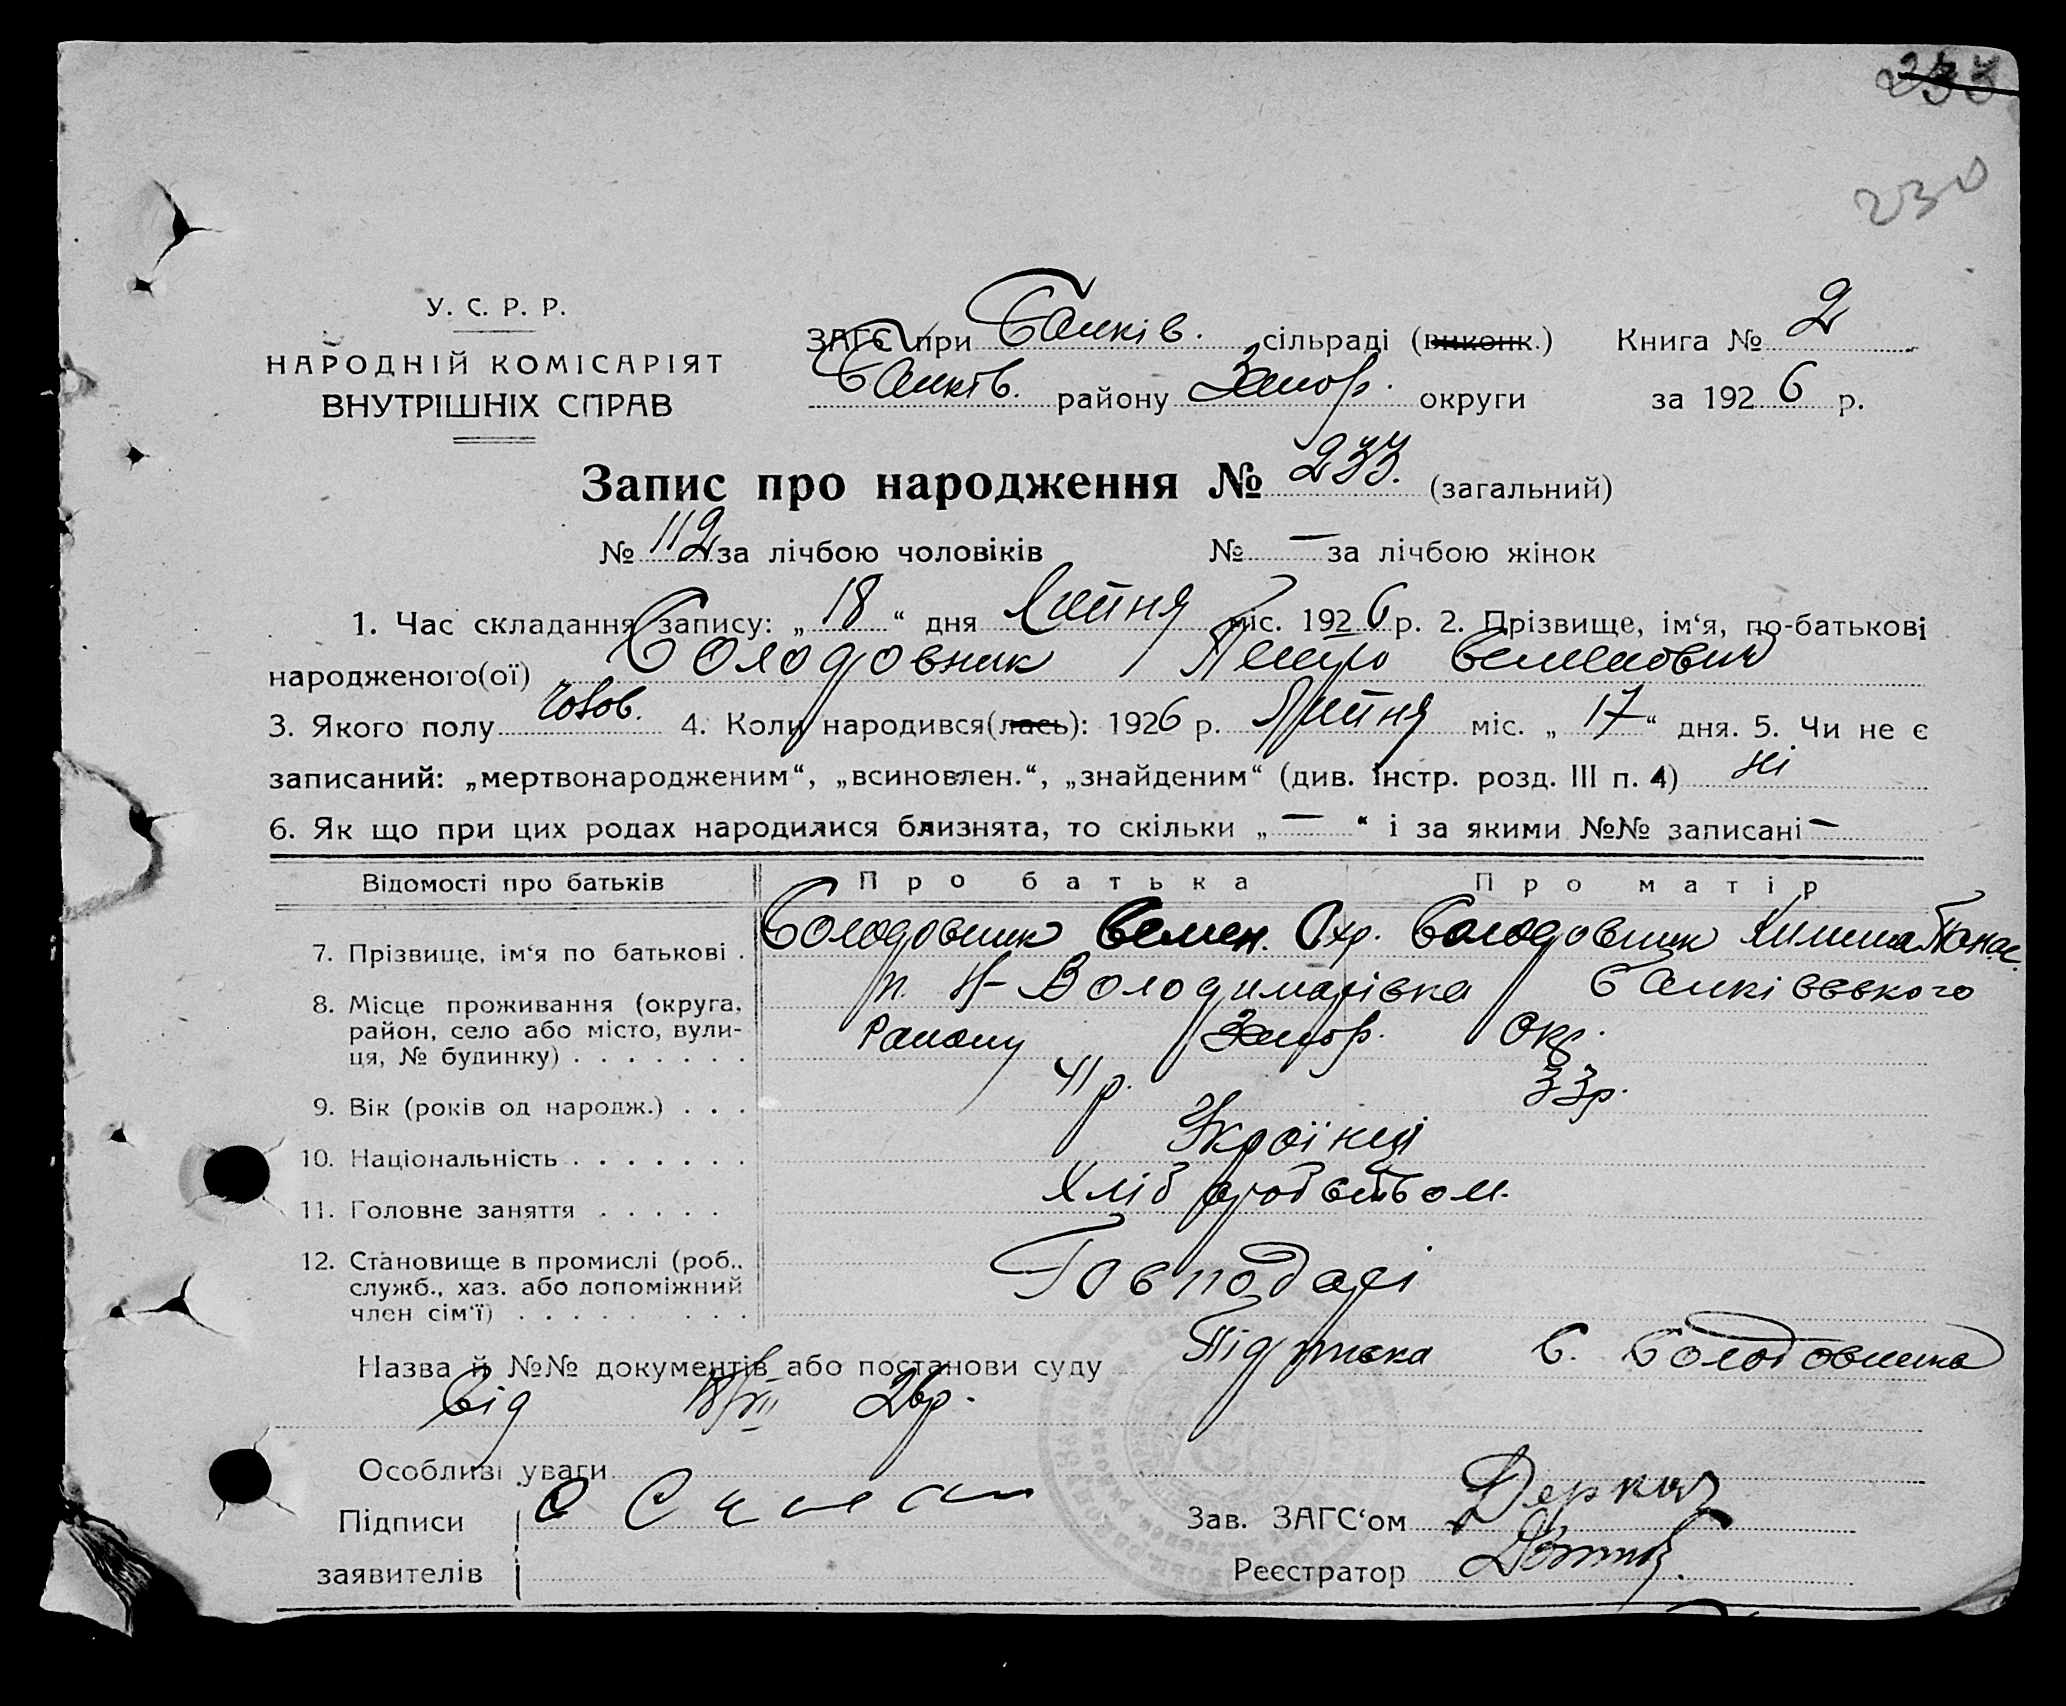 233
230
У. С. Р. Р.
НАРОДНІЙ КОМІСАРІЯТ
ВНУТРІШНІХ СПРАВ
ЗАГС при Санків. сільраді (виконк.) Книга № 2
Санків. району Запор. округи за 1926 р.
Запис про народження № 233. (загальний)
№ 112 за лічбою чоловіків № — за лічбою жінок
1. Час складання запису: „18“ дня Липня міс. 1926 р. 2. Прізвище, ім‘я, по-батькові
народженого(ої) Солодовник Петро Семенович
3. Якого полу чолов. 4. Коли народився(лась): 1926 р. Липня міс. „17“ дня. 5. Чи не є
записаний: „мертвонародженим“, „всиновлен.“, „знайденим“ (див. Інстр. розд. III п. 4) ні
6. Як що при цих родах народилися близнята, то скільки „ — “ і за якими №№ записані —
Відомості про батьків Про батька Про матір
7. Прізвище, ім‘я по батькові . Солодовник Семен. Охр. Солодовник Килина Панас.
8. Місце проживання (округа, район, село або місто, вулиця, № будинку) . . . . . . . п. Н-Володимирівка Санківського
Району Запор. Окр.
9. Вік (років од народж.) . . . 41 р. 33 р.
10. Національність . . . . . . . Українці
11. Головне заняття . . . . . Хліборобством.
12. Становище в промислі (роб., служб., хаз. або допоміжний член сім‘ї) . . . . . . . . . Господарі
Назва й №№ документів або постанови суду Підписка С. Солодовника
від 18/VII 26р.
Особливі уваги
Підписи
заявителів
Зав. ЗАГС‘ом Деркач
Реєстратор